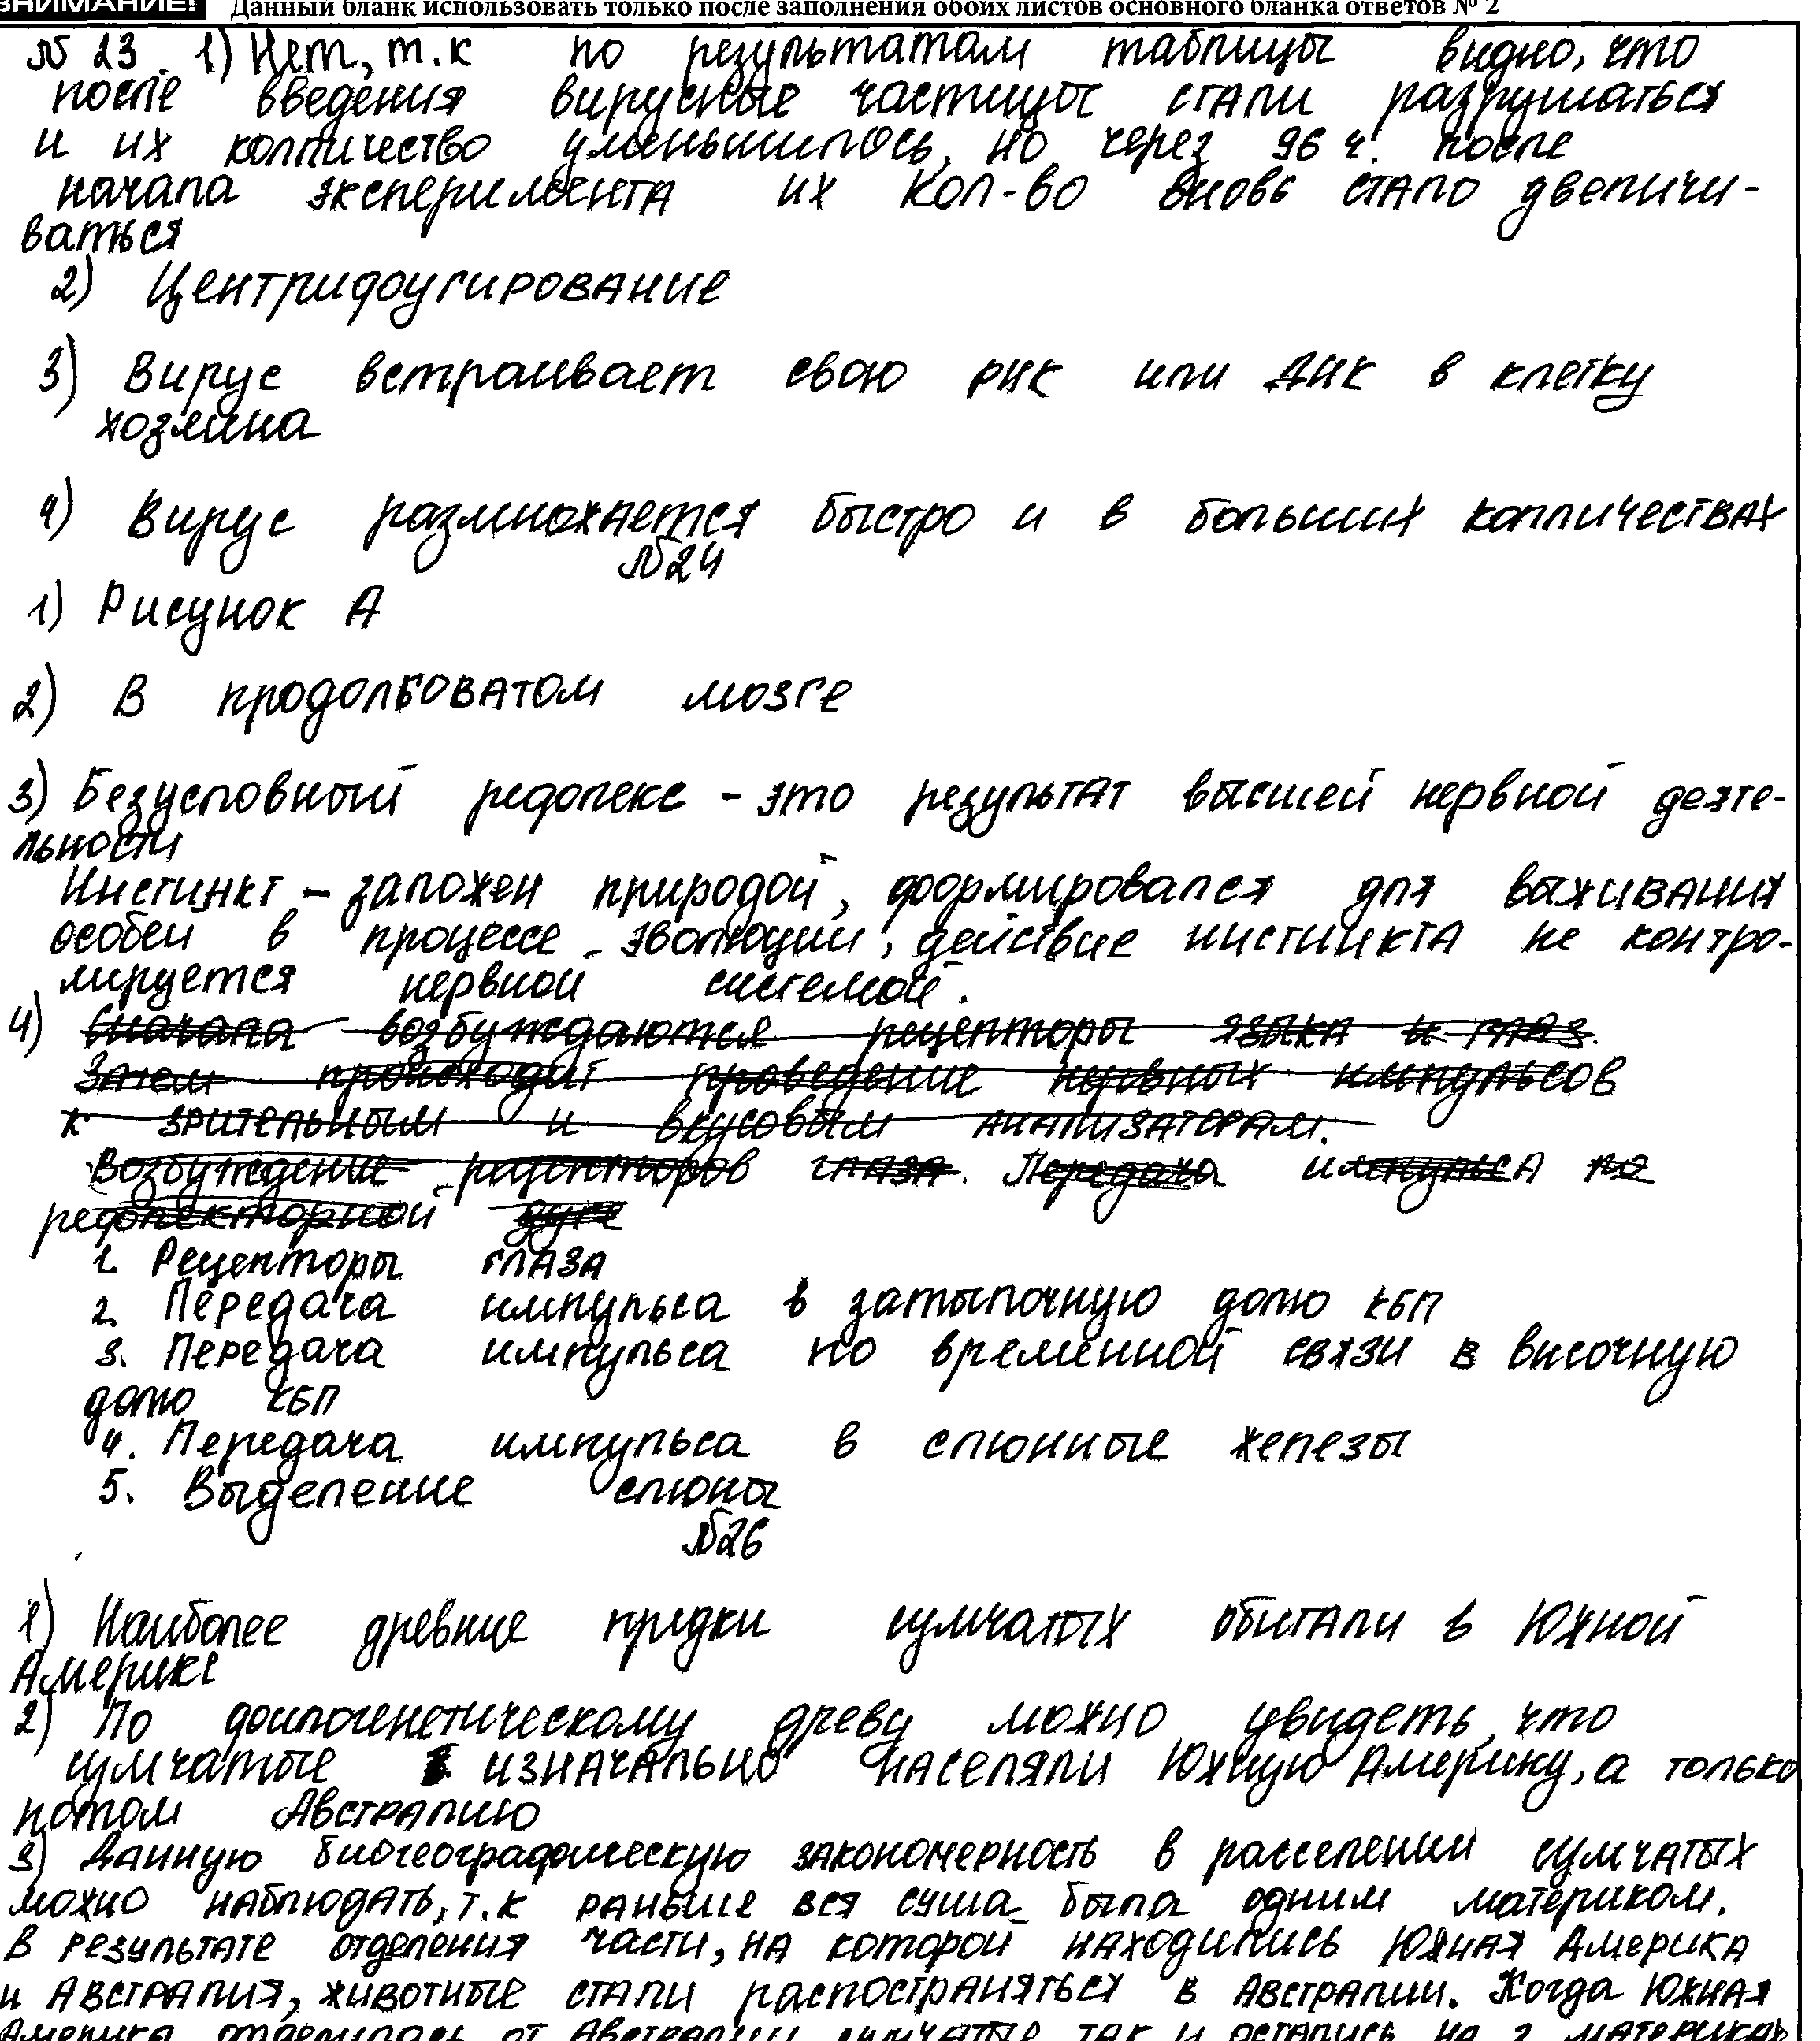 ВНИМАНИЕ! Данный бланк использовать только после заполнения обоих листов основного бланка ответов № 2
№ 23. 1) Нет, т.к по результатам таблицы видно, что
после введения вирусные частицы стали разрушаться
и их колличество уменьшилось, но через 96 ч. после
начала эксперимента их кол-во вновь стало увеличи-
ваться
2) Центрифугирование
3) Вирус встраивает свою РНК или ДНК в клетку
хозяина
4) Вирус размножается быстро и в больших колличествах
№24
1) Рисунок А
2) В продолговатом мозге
3) Безусловный рефлекс - это результат высшей нервной деяте-
льности
Инстинкт - заложен природой, формировался для выживания
особей в процессе эволюции, действие инстинкта не контро-
лируется нервной системой.
4) Сначала возбуждаются рецепторы языка и глаз.
Затем происходит проведение нервных импульсов
к зрительным и вкусовым анализаторам.
Возбуждение рецепторов глаза. Передача импульса по
рефлекторной дуге
1. Рецепторы глаза
2. Передача импульса в затылочную долю КБП
3. Передача импульса по временной связи в височную
долю КБП
4. Передача импульса в слюнные железы
5. Выделение слюны
№26
1) Наиболее древние предки сумчатых обитали в Южной
Америке
2) По филогенетическому древу можно увидеть, что
сумчатые изначально населяли Южную Америку, а только
потом Австралию
3) Данную биогеографическую закономерность в расселении сумчатых
можно наблюдать, т.к раньше вся суша была одним материком.
В результате отделения части, на которой находились Южная Америка
и Австралия, животные стали распостраняться в Австралии. Когда Южная
Америка отделилась от Австралии сумчатые так и остались на 2 материках